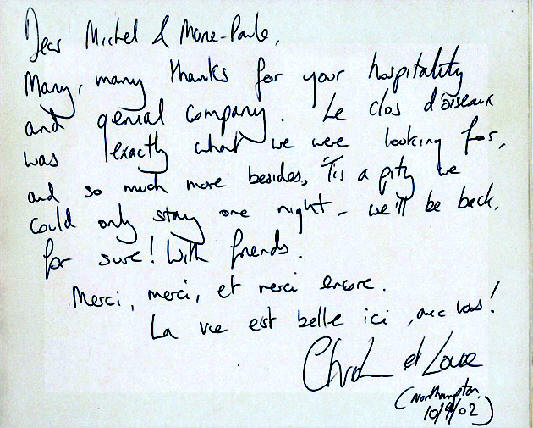 Dear Michel & Marie-Paule,
Many, many thanks for your hospitality
and genial company. Le clos d'oiseaux
was exactly what we were looking for,
and so much more besides, 'Tis a pity we
could only stay one night - we'll be back,
for sure! With friends.
Merci, merci, et merci encore.
La vie est belle ici, avec vous!
et
(Northampton
10/9/02)